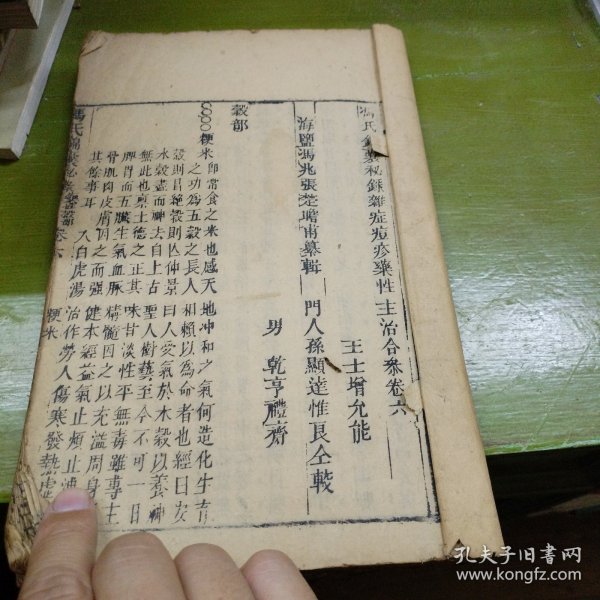 馮氏錦囊秘錄雜症痘疹藥性主治合參卷六
王士增允能
海鹽馮兆張楚瞻甫纂輯 門人孫顯達惟良仝較
男 乾亨禮齋
穀部
粳米即常食之米也感天地冲和之氣何造化生
之功為五穀之長人相賴以為命者也經曰安
穀則昌絕穀則亡仲景曰人受氣於水穀以養神
水穀盡而神去自上古聖人樹藝至今不可一日
無此也稟土德之正其味甘淡性平無毒雖專主
脾胃而五臟生氣血脈精髓因之以充溢周身
骨肌肉皮膚因之而強健本經益氣止煩止
其餘事耳 入白虎湯治作勞人傷寒發熱虛
馮氏錦囊秘 卷六
粳米
孔夫子旧书网
www.kongfz.com